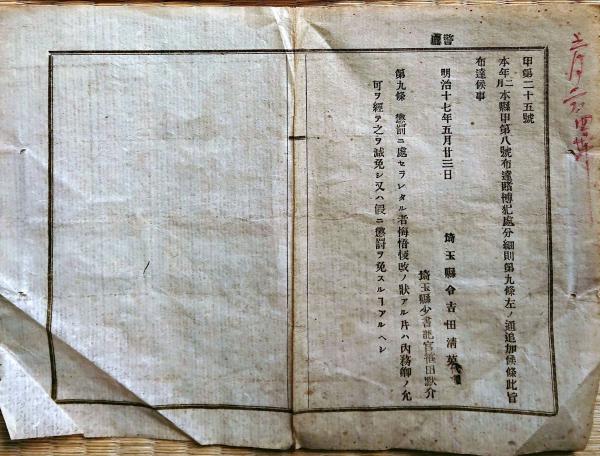 甲第二十五號
本年二月本縣甲第八號布達賭博犯處分細則第九條左ノ通追加候條此旨
布達候事
明治十七年五月廿三日
埼玉縣令吉田清英代理
埼玉縣少書記官笹田默介
第九條 懲罰ニ處セラレタル者悔悟悛改ノ狀アル片ハ內務卿ノ允
可ヲ經テ之ヲ減免シ又ハ假ニ懲罰ヲ免スルヿアルヘシ